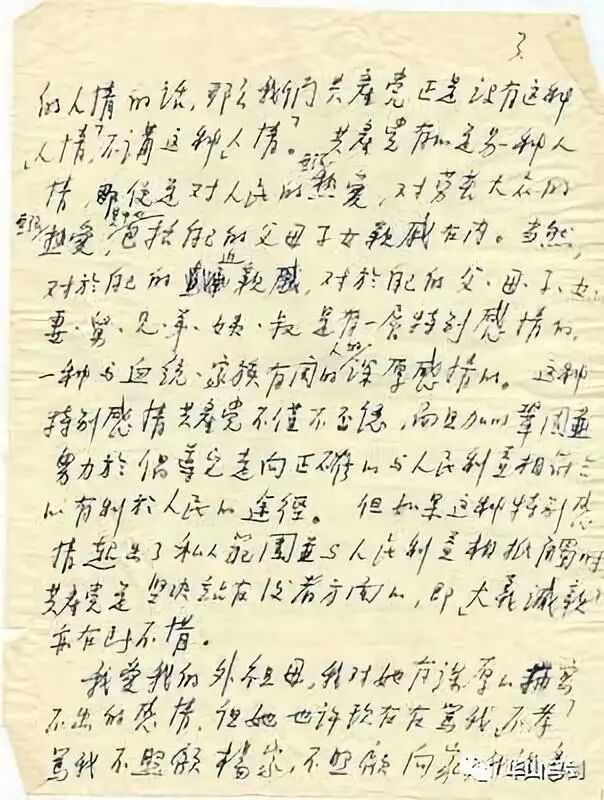 3.
的人情的话，那么我们共產党正是没有这种
「人情」，不講这种「人情」。共產党有的是另一种人
情，那便是对人民的無限热愛，对劳苦大众的
無限热愛，其中也包括自己的父母子女親戚在内。当然，
对於自己的近親戚，对於自己的父、母、子、女、
妻、舅、兄、弟、姨、叔是有一層特别感情的，
一种与血统、家族有関的人的深厚感情的。这种
特别感情共產党不僅不否認，而且加以鞏固並
努力於倡導它走向正確的与人民利益相符合
的有利於人民的途徑。但如果这种特别感
情超出了私人範圍並与人民利益相抵觸时
共產党是坚决站在後者方面的，即「大義滅親」
亦在所不惜。
我愛我的外祖母，我对她有深厚的描寫
不出的感情，但她也許現在在罵我「不孝」，
罵我不照顧楊家，不照顧向家